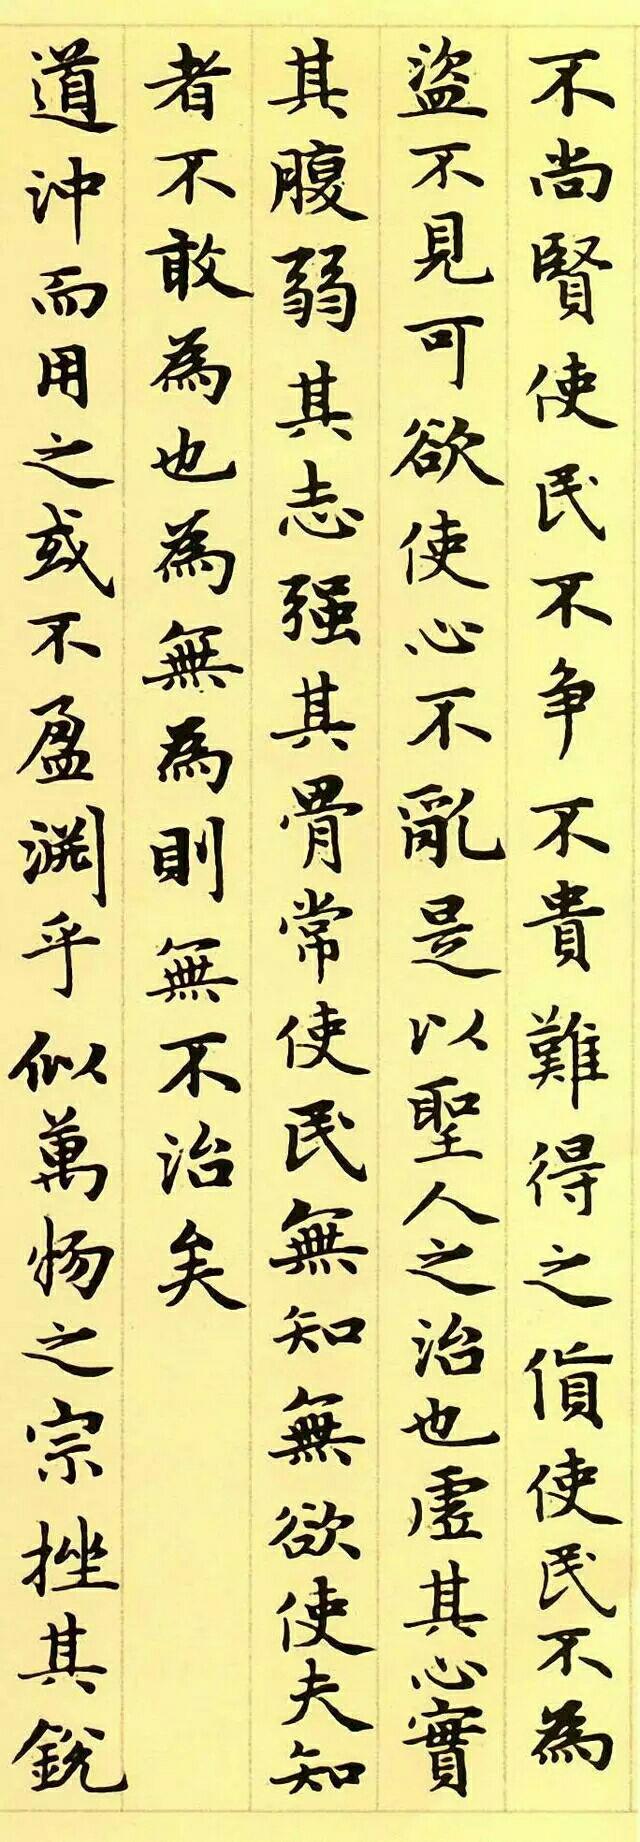 不尚賢使民不争不貴難得之貨使民不為
盜不見可欲使心不亂是以聖人之治也虛其心實
其腹弱其志强其骨常使民無知無欲使夫知
者不敢為也為無為則無不治矣
道沖而用之或不盈渊乎似萬物之宗挫其銳